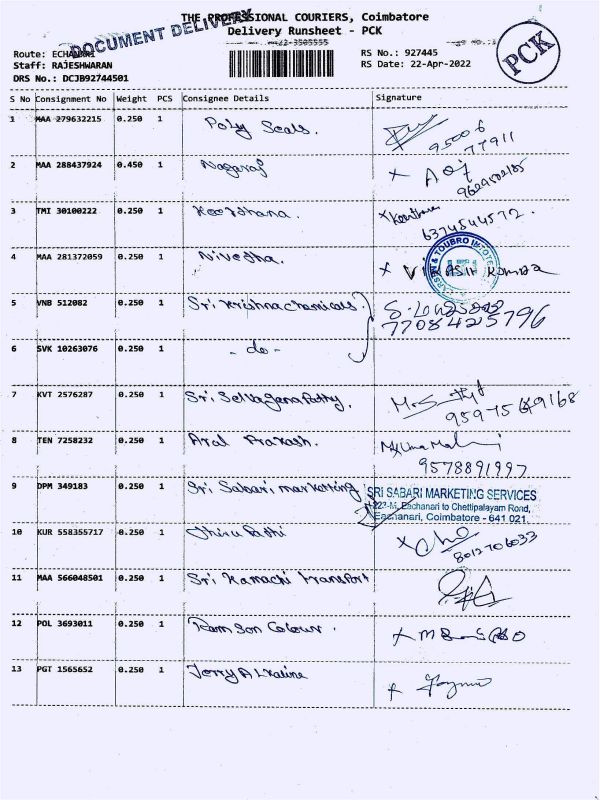 THE PROFESSIONAL COURIERS, Coimbatore
DOCUMENT DELIVERY
Delivery Runsheet - PCK
PCK
Route:
RS No.: 927445
Staff: RAJESHWARAN
RS Date: 22-Apr-2022
DRS No.: DCJB92744501
S No Consignment No Weight PCS Consignee Details Signature
1 MAA 279632215 0.250 1 Poly Seals.
95006
77911
2 MAA 288437924 0.450 1 Nagaraj
3 TMI 30100222 0.250 1
6374544572.
4 MAA 281372059 0.250 1 Nivedha.
LARSEN & TOUBRO
5 VNB 512082 0.250 1 Sri Krishna chemicals
7708425796
6 SVK 10263076 0.250 1 - do -
7 KVT 2576287 0.250 1
8 TEN 7258232 0.250 1 Aral Prakash.
9578891997
9 DPM 349183 0.250 1 Sri Sabari marketting
SRI SABARI MARKETING SERVICES
Eachanari to Chettipalayam Road,
Eachanari, Coimbatore - 641 021.
10 KUR 558355717 0.250 1 Thirupathi
8012706033
11 MAA 566048501 0.250 1 Sri Kamachi transport
12 POL 3693011 0.250 1 Ramson Colour.
13 PGT 1565652 0.250 1 Jerry Alkaline